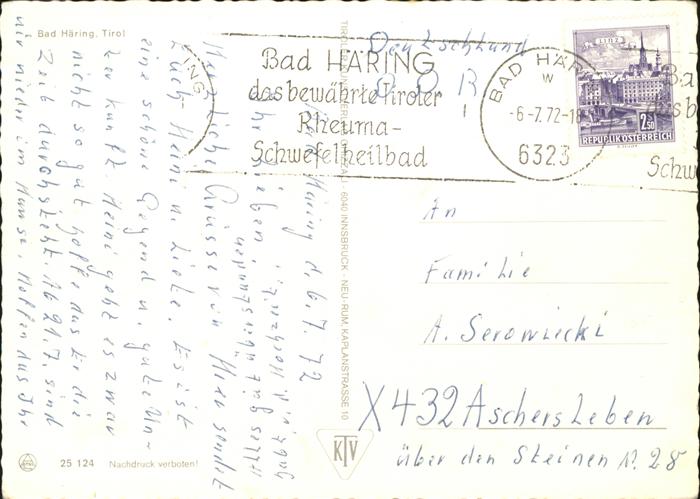 Bad Häring, Tirol
Bad Häring d. 6.7.72
Ihr Lieben,
Herzliche Grüsse von Hier sendet
Euch Heini u. Liele. Es ist
eine schöne Gegend u. gute Un-
terkunft. Heini geht es zwar
nicht so gut hoffe das Er die
Zeit durchsteht. Ab 21.7. sind
wir wieder im Hause. Hoffen das Ihr
Alles gut überstanden
25 124 Nachdruck verboten!
6040 INNSBRUCK - NEU-RUM, KAPLANSTRASSE 10
KTV
Deutschland
DDR
Bad HÄRING
das bewährte Tiroler
Rheuma-
Schwefelheilbad
BAD HÄR
-6.-7.72-18
6323
LINZ
2.50
REPUBLIK ÖSTERREICH
An
Familie
A. Serowiecki
X 432 Aschersleben
über den Steinen N. 28